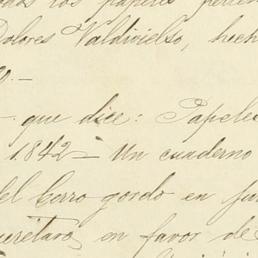 los papeles
Dolores Valdivielso, hech
que dice: Papele
1842 — Un cuaderno
del Cerro gordo en ju
uerétaro, en favor de